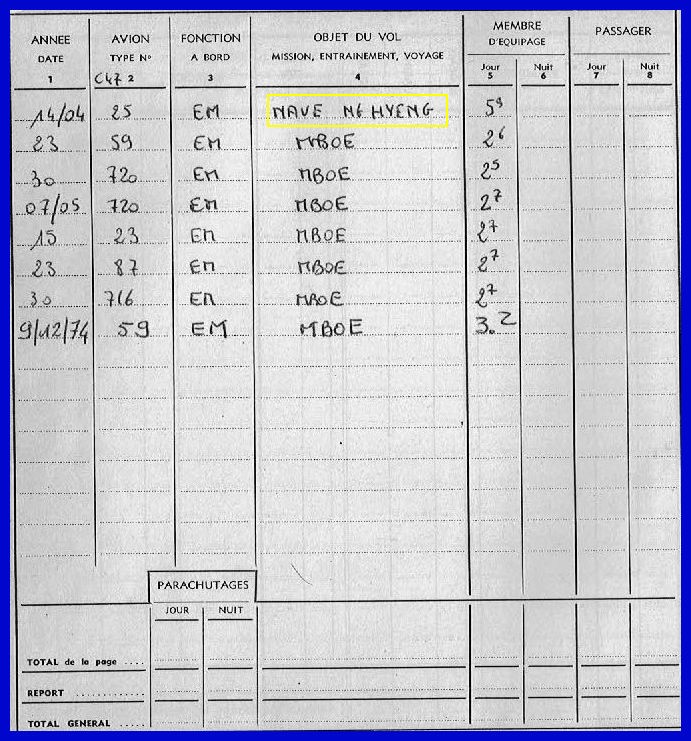 ANNEE AVION FONCTION OBJET DU VOL MEMBRE D'EQUIPAGE PASSAGER
DATE TYPE N° A BORD MISSION, ENTRAINEMENT, VOYAGE Jour Nuit Jour Nuit
1 C47 2 3 4 5 6 7 8
14/04 25 EM NAVE NG HYENG 5⁹
23 59 EM MBOE 2⁶
30 720 EM MBOE 2⁵
07/05 720 EM MBOE 2⁷
15 23 EM MBOE 2⁷
23 87 EM MBOE 2⁷
30 716 EM MBOE 2⁷
9/12/74 59 EM MBOE 3.2
PARACHUTAGES
JOUR NUIT
TOTAL de la page ....
REPORT ............
TOTAL GENERAL ....